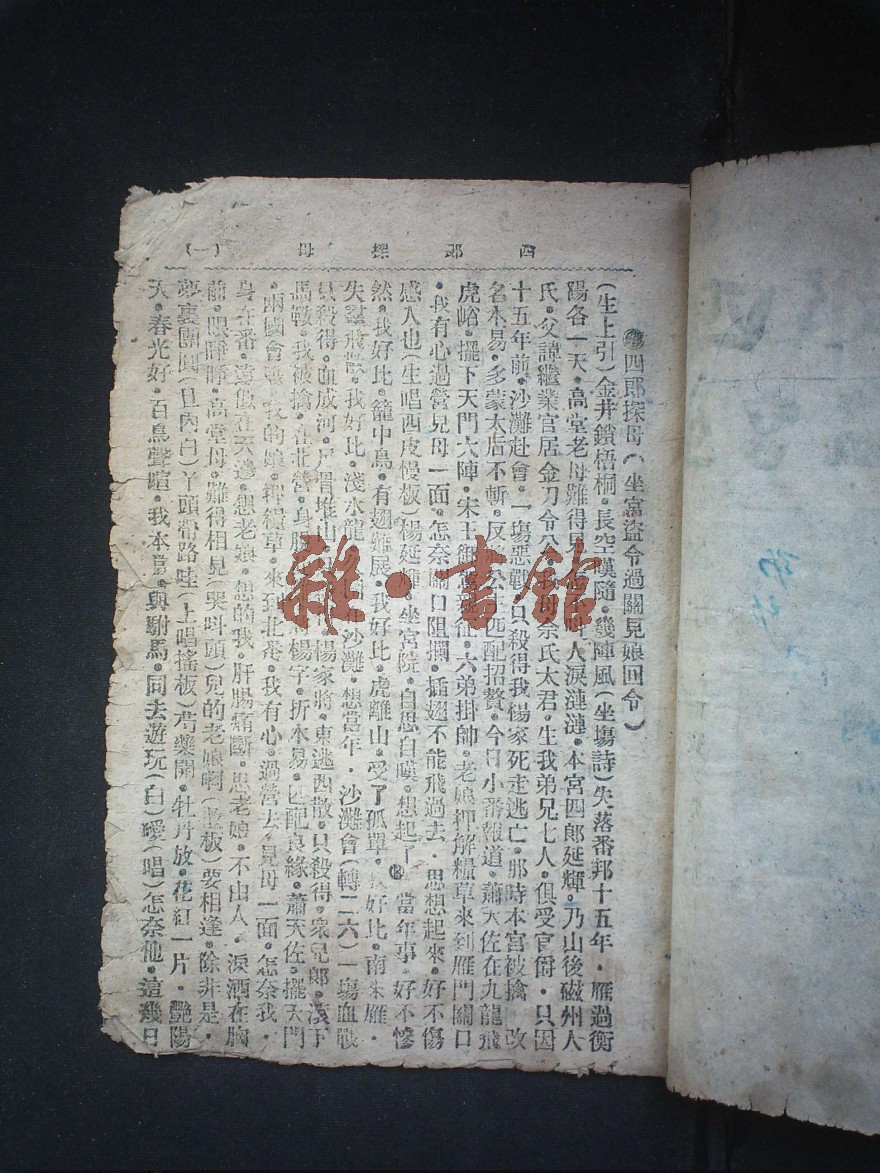 四郎探母 (一)
四郎探母(坐宮盜令過關見娘回令)
(生上引)金井鎖梧桐·長空漢隨·幾陣風(坐塲詩)失落番邦十五年·雁過衡
陽各一天·高堂老母難得見 人淚漣漣·本宮四郎延輝·乃山後磁州人
氏·父諱繼業官居金刀令公· 佘氏太君·生我弟兄七人·俱受官爵·只因
十五年前·沙灘赴會·一塲惡戰·只殺得我楊家死走逃亡·那時本宮被擒·改
名木易·多蒙太后不斬·反 公主匹配招贅·今日小番報道·蕭天佐在九龍飛
虎峪·擺下天門大陣·宋王御駕親征·六弟掛帥·老娘押解糧草來到雁門關口
·我有心過營見母一面·怎奈關口阻攔·插翅不能飛過去·思想起來·好不傷
感人也(生唱西皮慢板)楊延輝·坐宮院·自思自嘆·想起了 當年事·好不慘
然·我好比·籠中鳥·有翅難展·我好比·虎離山·受了孤單· 好比·南來雁·
失羣飛散·我好比·淺水龍 沙灘·想當年·沙灘會(轉二六)一塲血戰
只殺得·血成河·尸骨堆山· 楊家將·東逃西散·只殺得·衆兄郎·滾下
馬鞍·我被擒·在北營·身 將楊字·折木易·匹配良緣·蕭天佐·擺天門
·兩國會 我的娘·押糧草·來到北番·我有心·過營去·見母一面·怎奈我·
身在番·遠似在天邊·想老娘·想的我·肝腸痛斷·思老娘·不由人·淚洒在胸
前·眼睜睜·高堂母·難得相見(哭呌頭)兒的老娘啊( 板)要相逢·除非是·
夢裏團圓(旦內白)丫頭帶路哇(上唱搖板)芍藥開·牡丹放·花紅一片·艷陽
天·春光好·百鳥聲喧·我本當·與駙馬·同去遊玩(白)噯(唱)怎奈他·這幾日
雜·書館